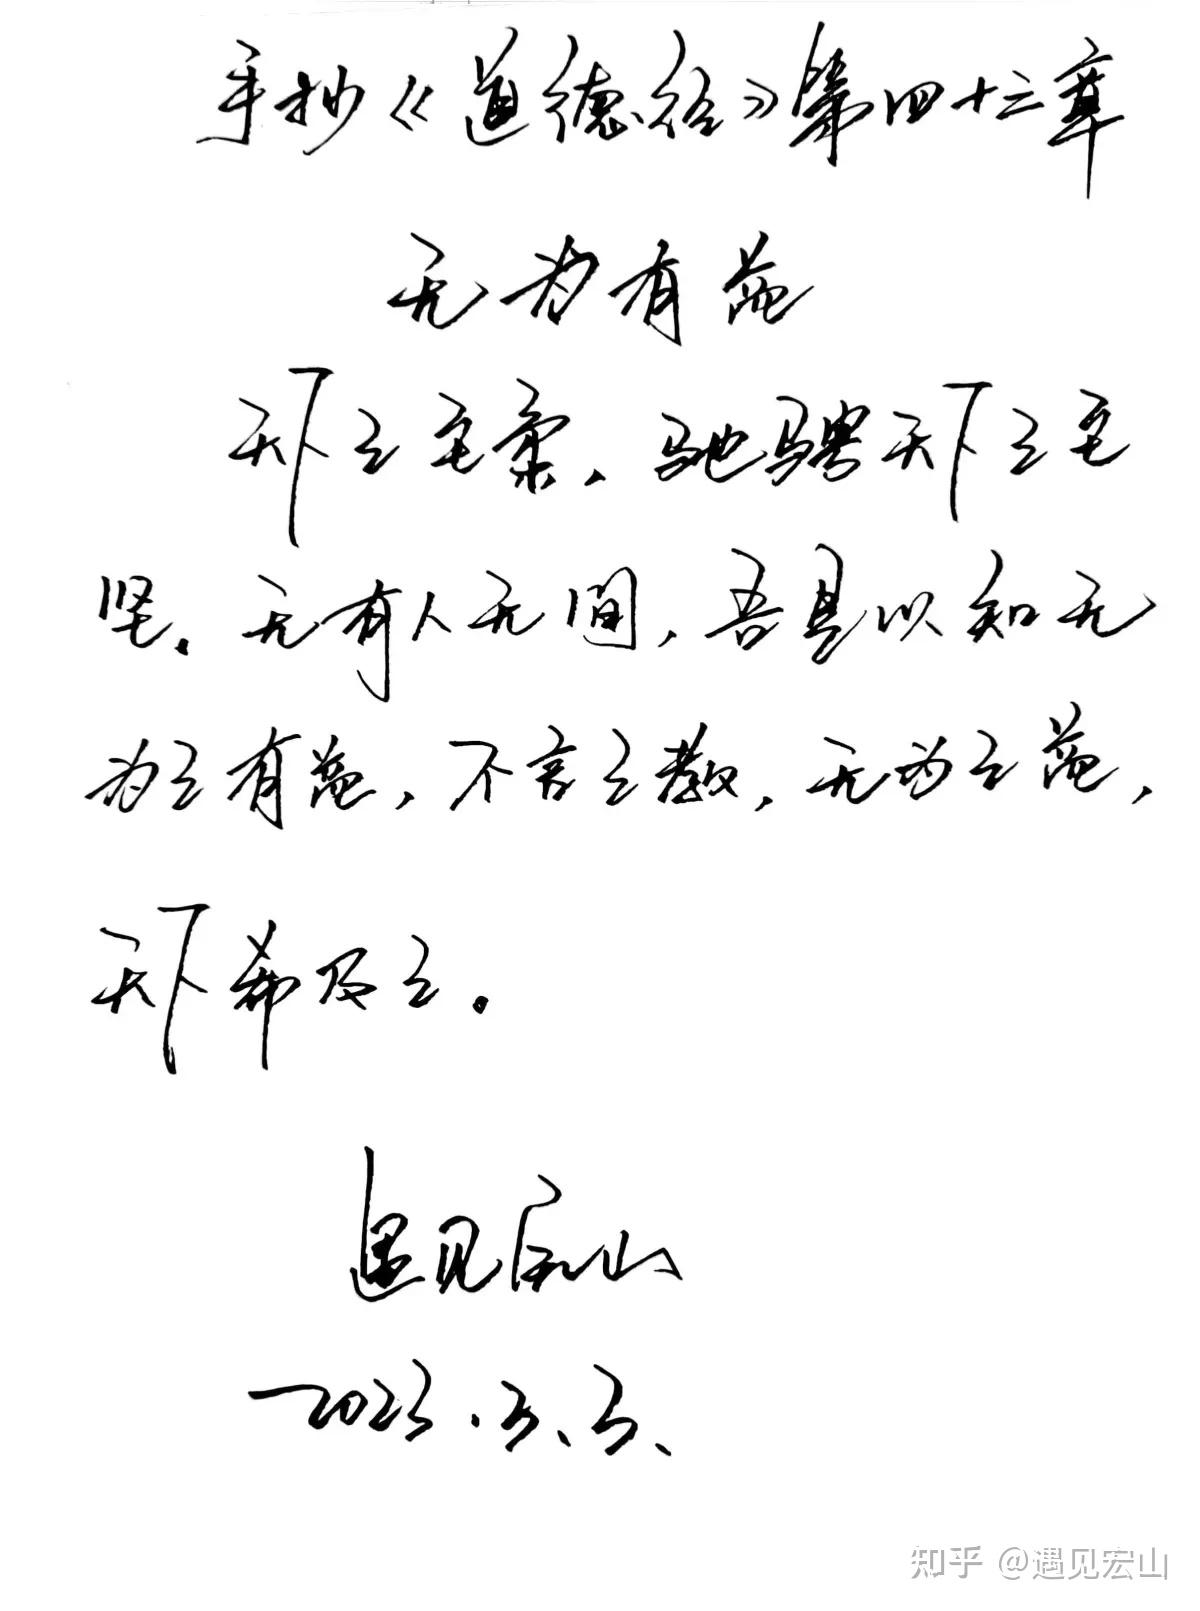 手抄《道德经》第四十三章
无为有益
天下之至柔，驰骋天下之至
坚。无有人无间，吾是以知无
为之有益，不言之教，无为之益，
天下希及之。
遇见宏山
2023.3.3.
知乎 @遇见宏山